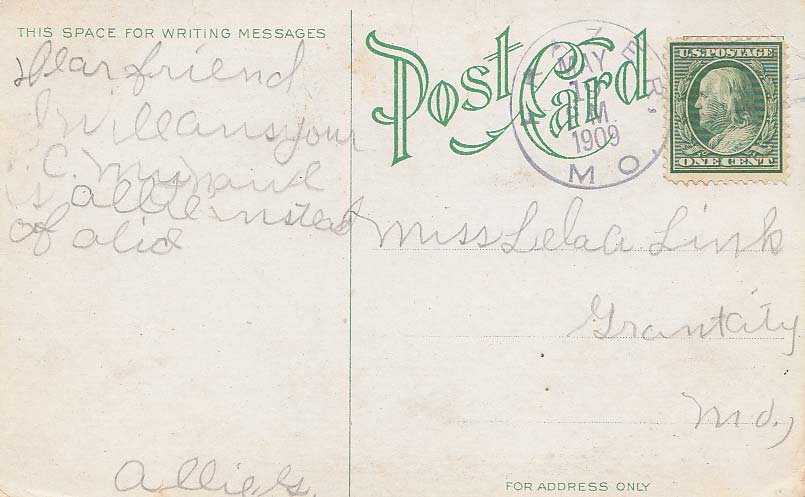 THIS SPACE FOR WRITING MESSAGES
Dear friend
I will ans your
C. My name
is allie instead
of alid
Allie G.
Post Card
MAY
19
M.
1909
MO.
U.S. POSTAGE
ONE CENT
Miss Lela A. Link
Grant City
Mo.,
FOR ADDRESS ONLY